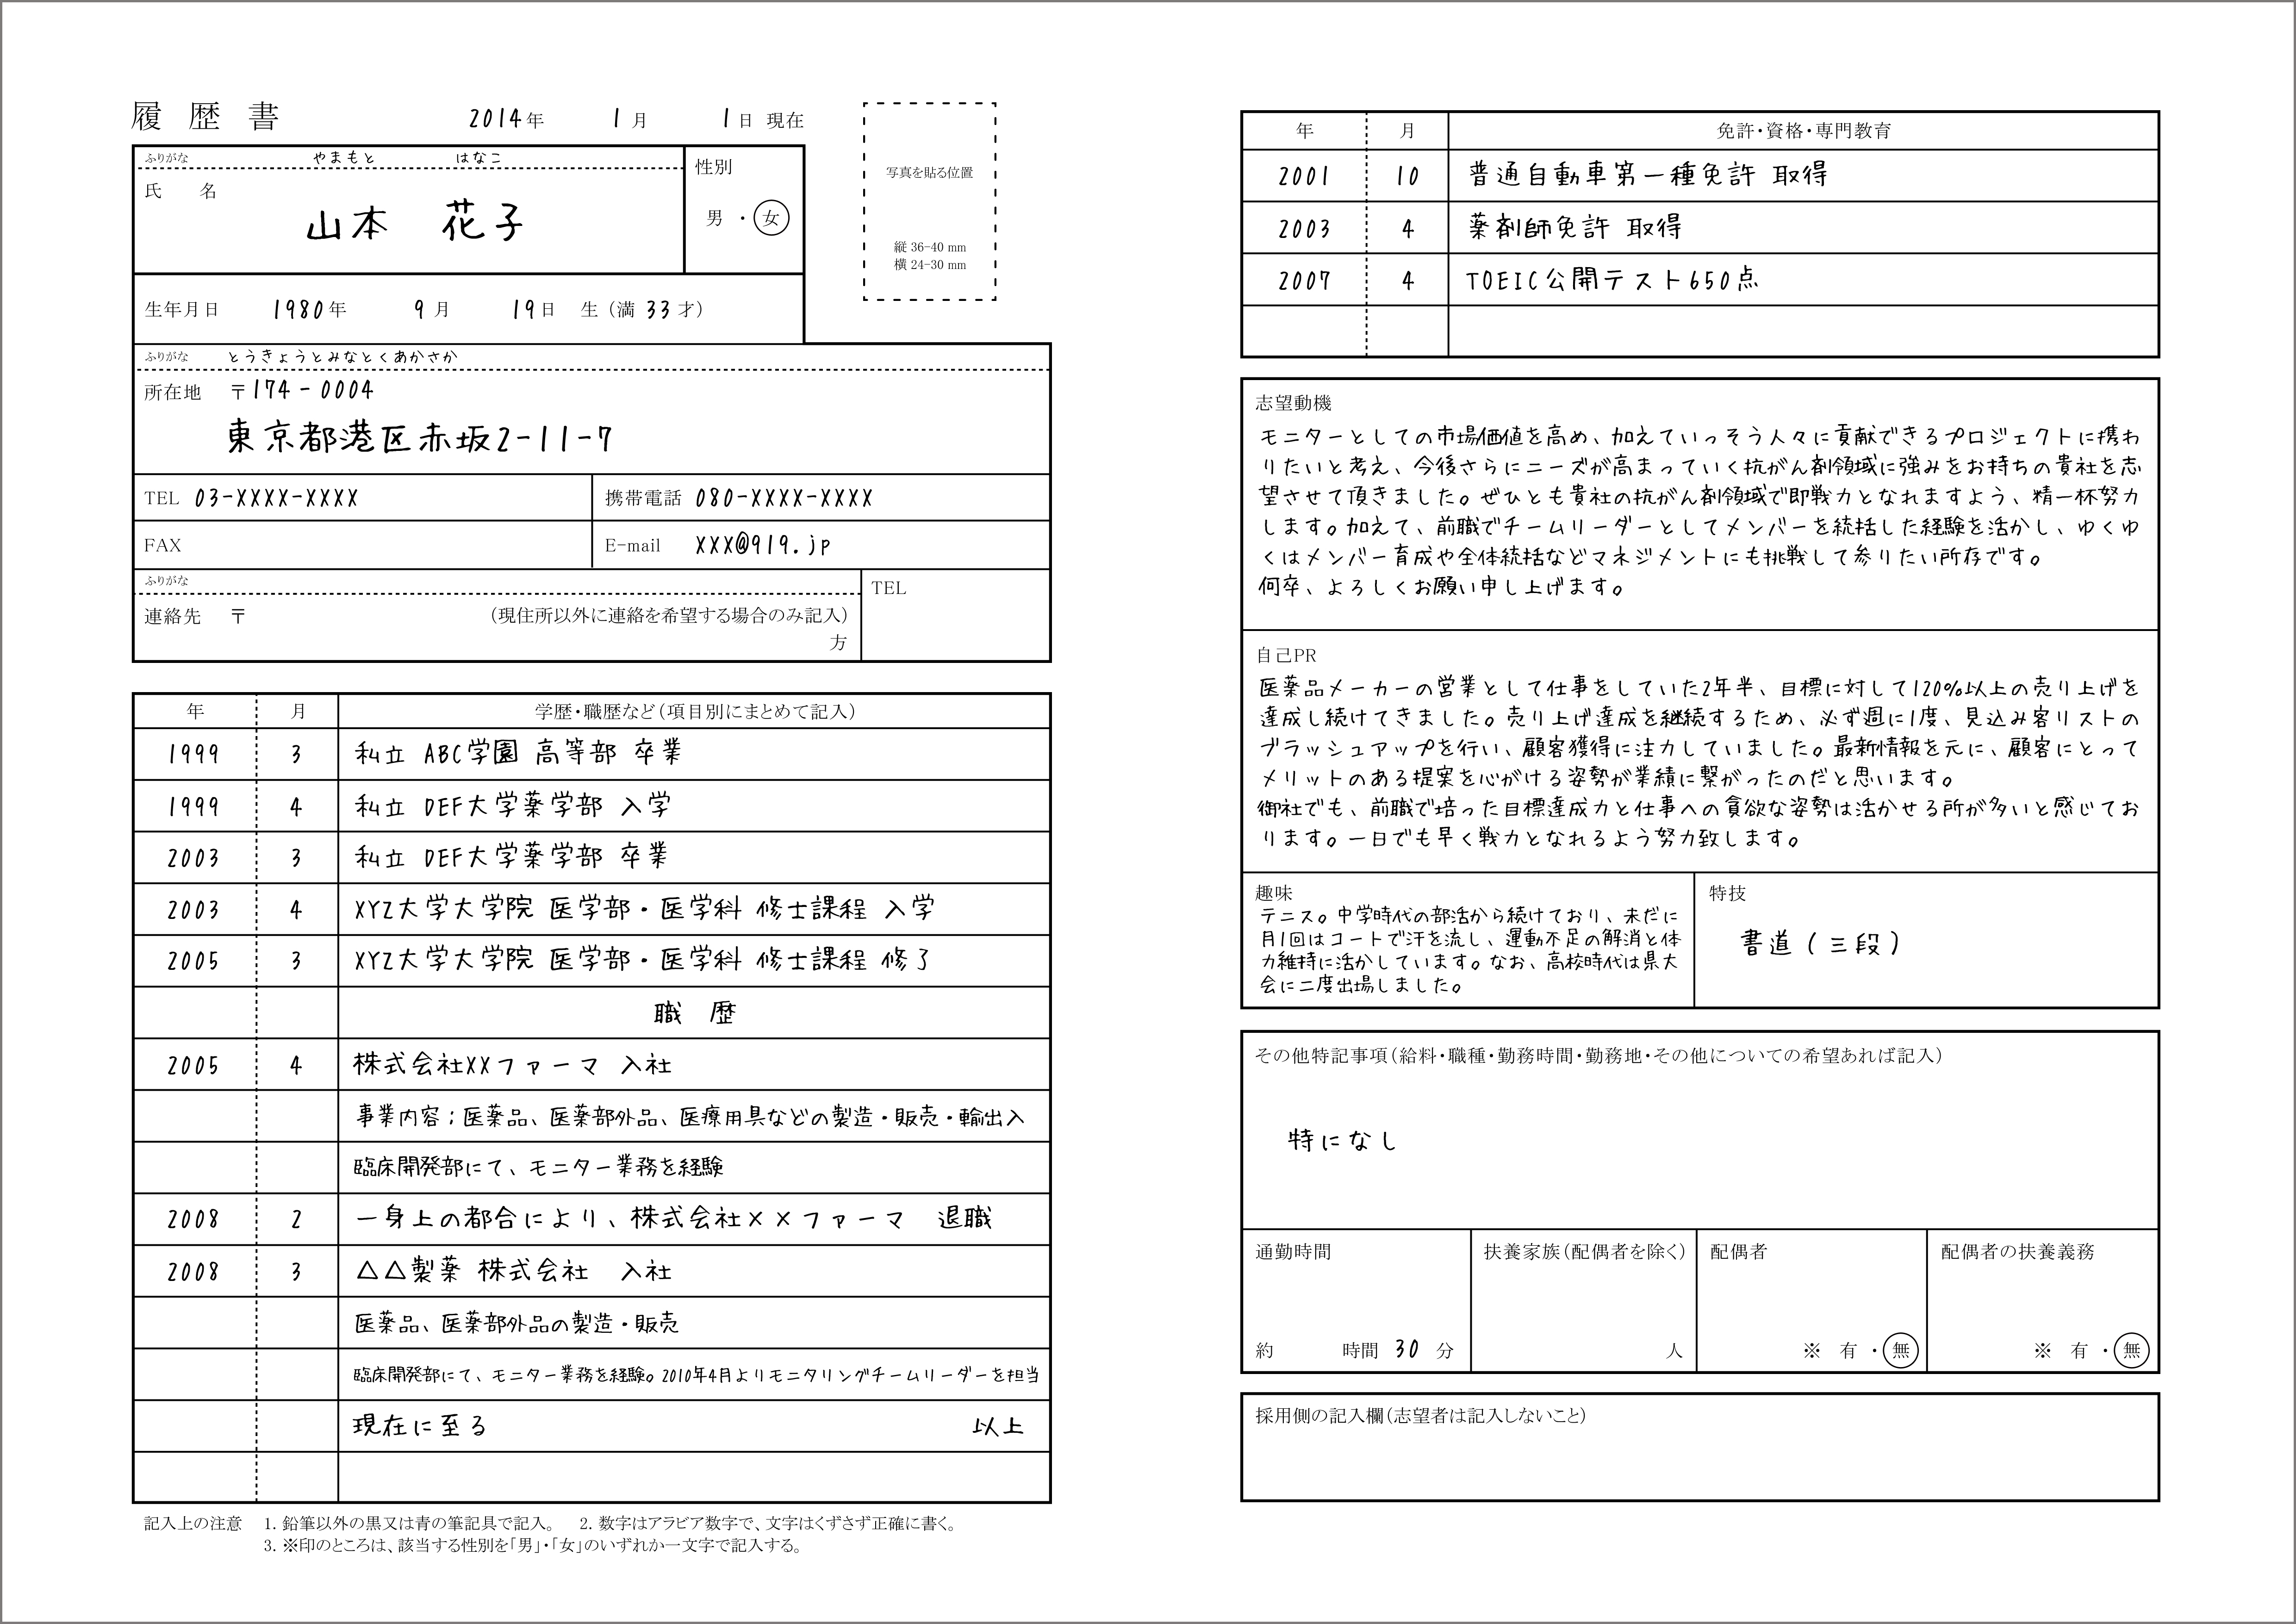 履歴書　2014年　1月　1日 現在
ふりがな　やまもと　はなこ
氏　名　山本　花子
性別
男 ・ 女
写真を貼る位置
縦 36-40 mm
横 24-30 mm
生年月日　1980年　9月　19日　生（満 33 才）
ふりがな　とうきょうとみなとくあかさか
所在地　〒174-0004
東京都港区赤坂2-11-7
TEL 03-XXXX-XXXX　携帯電話 080-XXXX-XXXX
FAX　E-mail XXX@919.jp
ふりがな
TEL
連絡先　〒　（現住所以外に連絡を希望する場合のみ記入）
方
年　月　学歴・職歴など（項目別にまとめて記入）
1999　3　私立 ABC学園 高等部 卒業
1999　4　私立 DEF大学薬学部 入学
2003　3　私立 DEF大学薬学部 卒業
2003　4　XYZ大学大学院 医学部・医学科 修士課程 入学
2005　3　XYZ大学大学院 医学部・医学科 修士課程 修了
職　歴
2005　4　株式会社XXファーマ 入社
事業内容；医薬品、医薬部外品、医療用具などの製造・販売・輸出入
臨床開発部にて、モニター業務を経験
2008　2　一身上の都合により、株式会社××ファーマ　退職
2008　3　△△製薬 株式会社　入社
医薬品、医薬部外品の製造・販売
臨床開発部にて、モニター業務を経験。2010年4月よりモニタリングチームリーダーを担当
現在に至る　以上
記入上の注意　1. 鉛筆以外の黒又は青の筆記具で記入。　2. 数字はアラビア数字で、文字はくずさず正確に書く。
3. ※印のところは、該当する性別を「男」・「女」のいずれか一文字で記入する。
年　月　免許・資格・専門教育
2001　10　普通自動車第一種免許 取得
2003　4　薬剤師免許 取得
2007　4　TOEIC公開テスト650点
志望動機
モニターとしての市場価値を高め、加えていっそう人々に貢献できるプロジェクトに携わ
りたいと考え、今後さらにニーズが高まっていく抗がん剤領域に強みをお持ちの貴社を志
望させて頂きました。ぜひとも貴社の抗がん剤領域で即戦力となれますよう、精一杯努力
します。加えて、前職でチームリーダーとしてメンバーを統括した経験を活かし、ゆくゆ
くはメンバー育成や全体統括などマネジメントにも挑戦して参りたい所存です。
何卒、よろしくお願い申し上げます。
自己PR
医薬品メーカーの営業として仕事をしていた2年半、目標に対して120%以上の売り上げを
達成し続けてきました。売り上げ達成を継続するため、必ず週に1度、見込み客リストの
ブラッシュアップを行い、顧客獲得に注力していました。最新情報を元に、顧客にとって
メリットのある提案を心がける姿勢が業績に繋がったのだと思います。
御社でも、前職で培った目標達成力と仕事への貪欲な姿勢は活かせる所が多いと感じてお
ります。一日でも早く戦力となれるよう努力致します。
趣味
テニス。中学時代の部活から続けており、未だに
月1回はコートで汗を流し、運動不足の解消と体
力維持に活かしています。なお、高校時代は県大
会に二度出場しました。
特技
書道（三段）
その他特記事項（給料・職種・勤務時間・勤務地・その他についての希望あれば記入）
特になし
通勤時間　扶養家族（配偶者を除く）　配偶者　配偶者の扶養義務
約　時間 30 分　人　※ 有 ・ 無　※ 有 ・ 無
採用側の記入欄（志望者は記入しないこと）